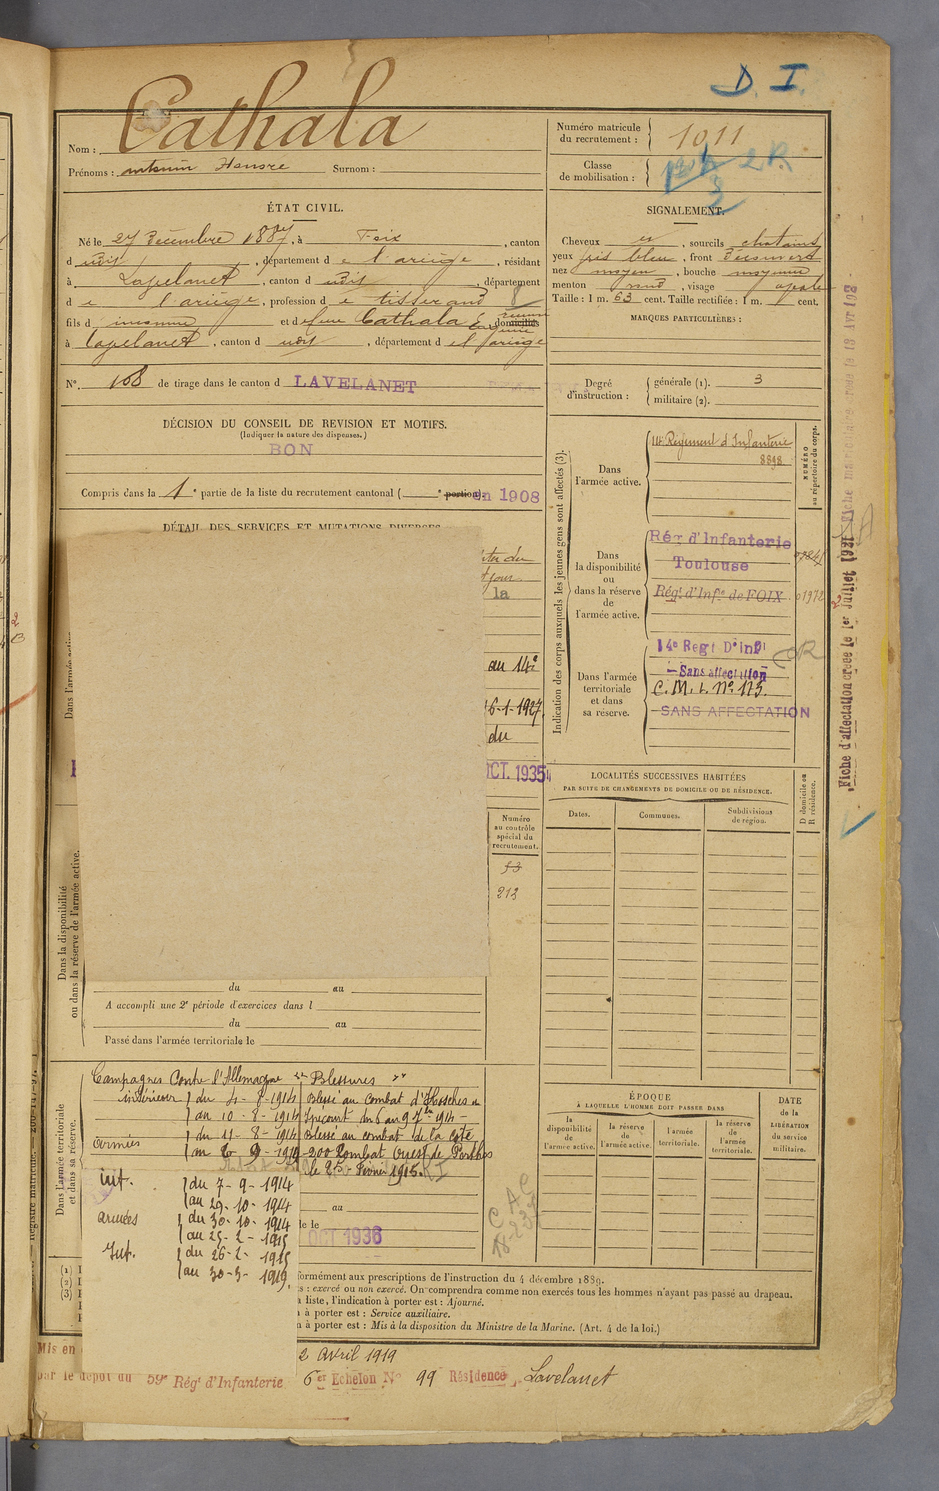 D. I.
Cathala
Nom :
Prénoms : Antonin Surnom :
Numéro matricule
du recrutement : 1011
Classe
de mobilisation : 2 R.
ÉTAT CIVIL.
Né le 27 Décembre 1887, à Foix, canton
d udit, département d e l'ariège, résidant
à Lavelanet, canton d udit, département
d e l'ariège, profession d e tisserand
fils d inconnu et d e feue Cathala domiciliés
à Lavelanet, canton d udit, département d e l'ariège
SIGNALEMENT.
Cheveux et, sourcils chatains
yeux gris bleu, front découvert
nez moyen, bouche moyenne
menton rond, visage ovale
Taille : 1 m. 63 cent. Taille rectifiée : 1 m. cent.
MARQUES PARTICULIÈRES :
N° 168 de tirage dans le canton d LAVELANET
Degré
d'instruction :
générale (1). 3
militaire (2).
DÉCISION DU CONSEIL DE REVISION ET MOTIFS.
(Indiquer la nature des dispenses.)
BON
Compris dans la 1e partie de la liste du recrutement cantonal ( e portion). en 1908
DÉTAIL DES SERVICES ET MUTATIONS DIVERSES
la
au 14e
16-1-1927.
du
OCT. 1935
Numéro
au contrôle
spécial du
recrutement.
53
212
Indication des corps auxquels les jeunes gens sont affectés (3).
Dans
l'armée active.
14e Régiment d'Infanterie
8898
NUMÉRO
au répertoire du corps.
Dans
la disponibilité
ou
dans la réserve
de
l'armée active.
Rég. d'Infanterie
Toulouse
Régt. d'Infie de FOIX 01972
Dans l'armée
territoriale
et dans
sa réserve.
14e Regt D'Infie
Sans affectation
C.M.I. N° 173
SANS AFFECTATION
Fiche d'affectation créée le 1er Juillet 1921
LOCALITÉS SUCCESSIVES HABITÉES
PAR SUITE DE CHANGEMENTS DE DOMICILE OU DE RÉSIDENCE.
Dates.
Communes.
Subdivisions
de région.
D domicile ou
R résidence.
Dans l'armée active.
Dans la disponibilité
ou dans la réserve de l'armée active.
du au
A accompli une 2e période d'exercices dans l
du au
Passé dans l'armée territoriale le
Dans l'armée territoriale
et dans sa réserve.
Campagnes Contre l'Allemagne Blessures
intérieur du 4-8-1914 Blessé au combat
au 10-8-1914 du 6 au 9 7bre 1914
armées du 11-8-1914 Blessé au combat de la cote
au 6-9-1914 200 Combat Ouest de Perthes
le 25 Février 1915.
int. du 7-9-1914
au 29-10-1914
armées du 30-10-1914
au 25-2-1915
Int. du 26-2-1915
au 30-3-1919.
au
le
OCT 1936
ÉPOQUE
À LAQUELLE L'HOMME DOIT PASSER DANS
la
disponibilité
de
l'armée active.
la réserve
de
l'armée active.
l'armée
territoriale.
la réserve
de
l'armée
territoriale.
DATE
de la
LIBÉRATION
du service
militaire.
formément aux prescriptions de l'instruction du 4 décembre 1889.
s : exercé ou non exercé. On comprendra comme non exercés tous les hommes n'ayant pas passé au drapeau.
a liste, l'indication à porter est : Ajourné.
à porter est : Service auxiliaire.
n à porter est : Mis à la disposition du Ministre de la Marine. (Art. 4 de la loi.)
(1)
(2)
(3)
Mis en
2 avril 1919
par le dépôt du 59e Régt d'Infanterie 6e Echelon N° 99 Résidence Lavelanet